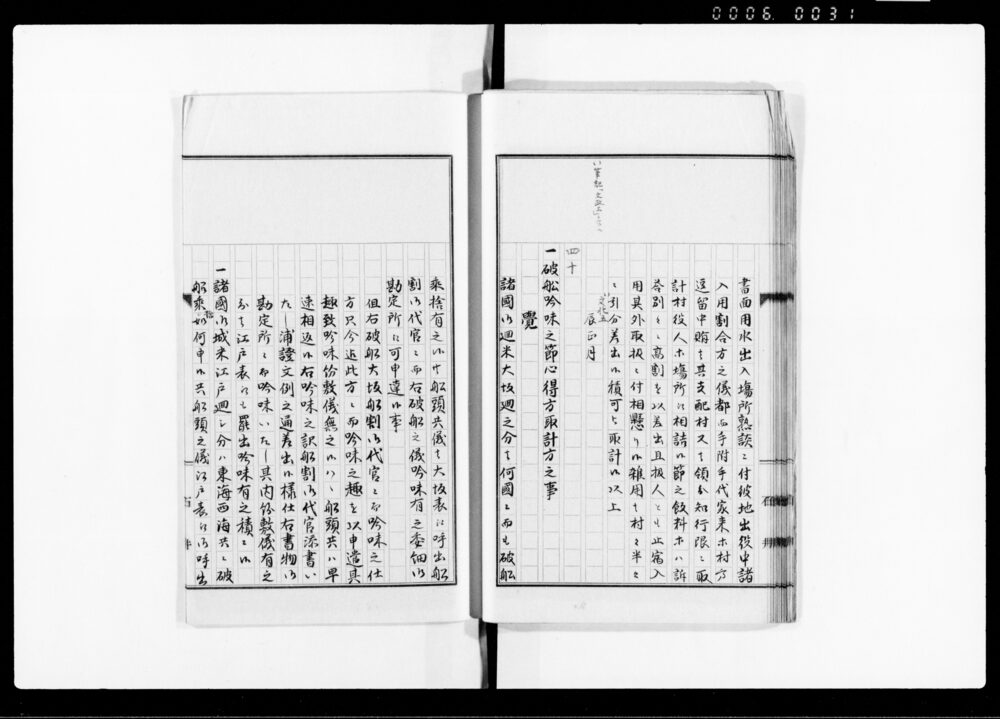 0006 0031
書面用水出入場所熟談ニ付彼地出役中諸
入用割合方之儀都而手附手代家来ホ村方
逗留中賄ハ其支配村又ハ領分知行限ニ取
計村役人ホ場所江相詰候節之飲料ホハ訴
答別々ニ高割を以差出且扱人とも止宿入
用其外取扱ニ付相懸り候雑用ハ村々半々
ニ引分差出候積可被取計候以上
辰正月
四十
一破船吟味之節心得方取計方之事
覺
諸國御廻米大坂廻之分ハ何國ニ而も破船
乘捨有之候ハヽ船頭共儀ハ大坂表江呼出船
割御代官ニ而右破船之儀吟味有之委細御
勘定所江可申達候事
但右破船大坂船割御代官ニ而吟味之仕
方只今迄此方ニ而吟味之趣を以申遣其
趣致吟味份敷儀無之候ハヽ船頭共ハ早
速相返候右吟味之訳船割御代官添書い
たし浦證文例之通差出候様仕右書物御
勘定所ニ而吟味いたし其内份敷儀有之
分ハ江戸表江も罷出吟味有之積ニ候
一諸國御城米江戸廻之分ハ東海西海共ニ破
船乘捨如何申候共船頭之儀江戸表江御呼出